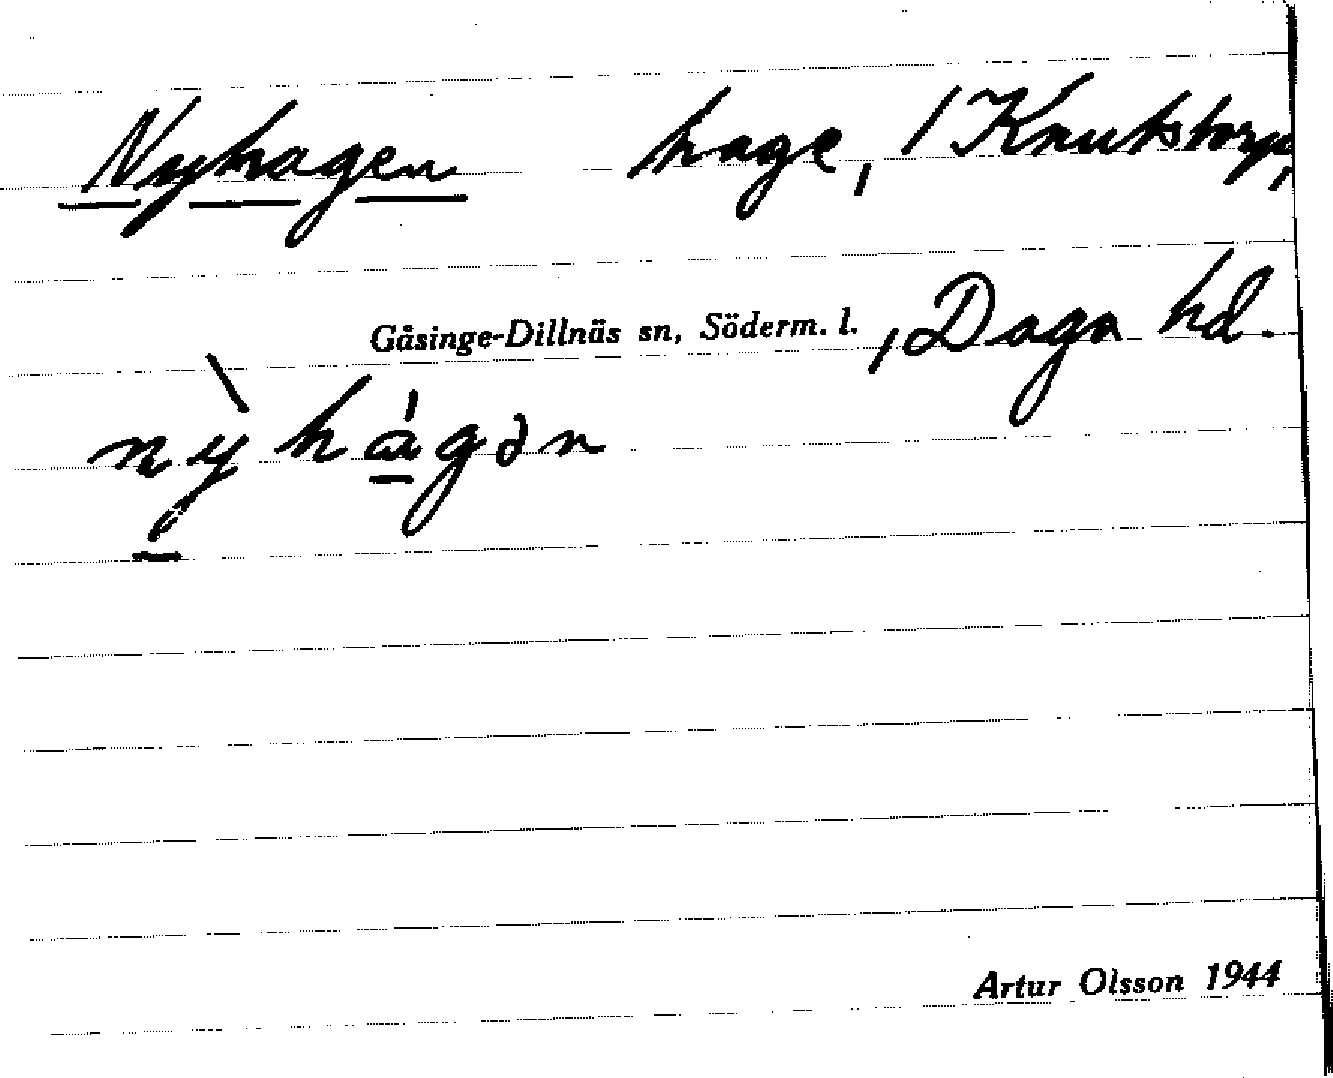 Nyhagen hage, / Knutstorp,
Gåsinge-Dillnäs sn, Söderm. l., Daga hd.
nỳhágən
Artur Olsson 1944